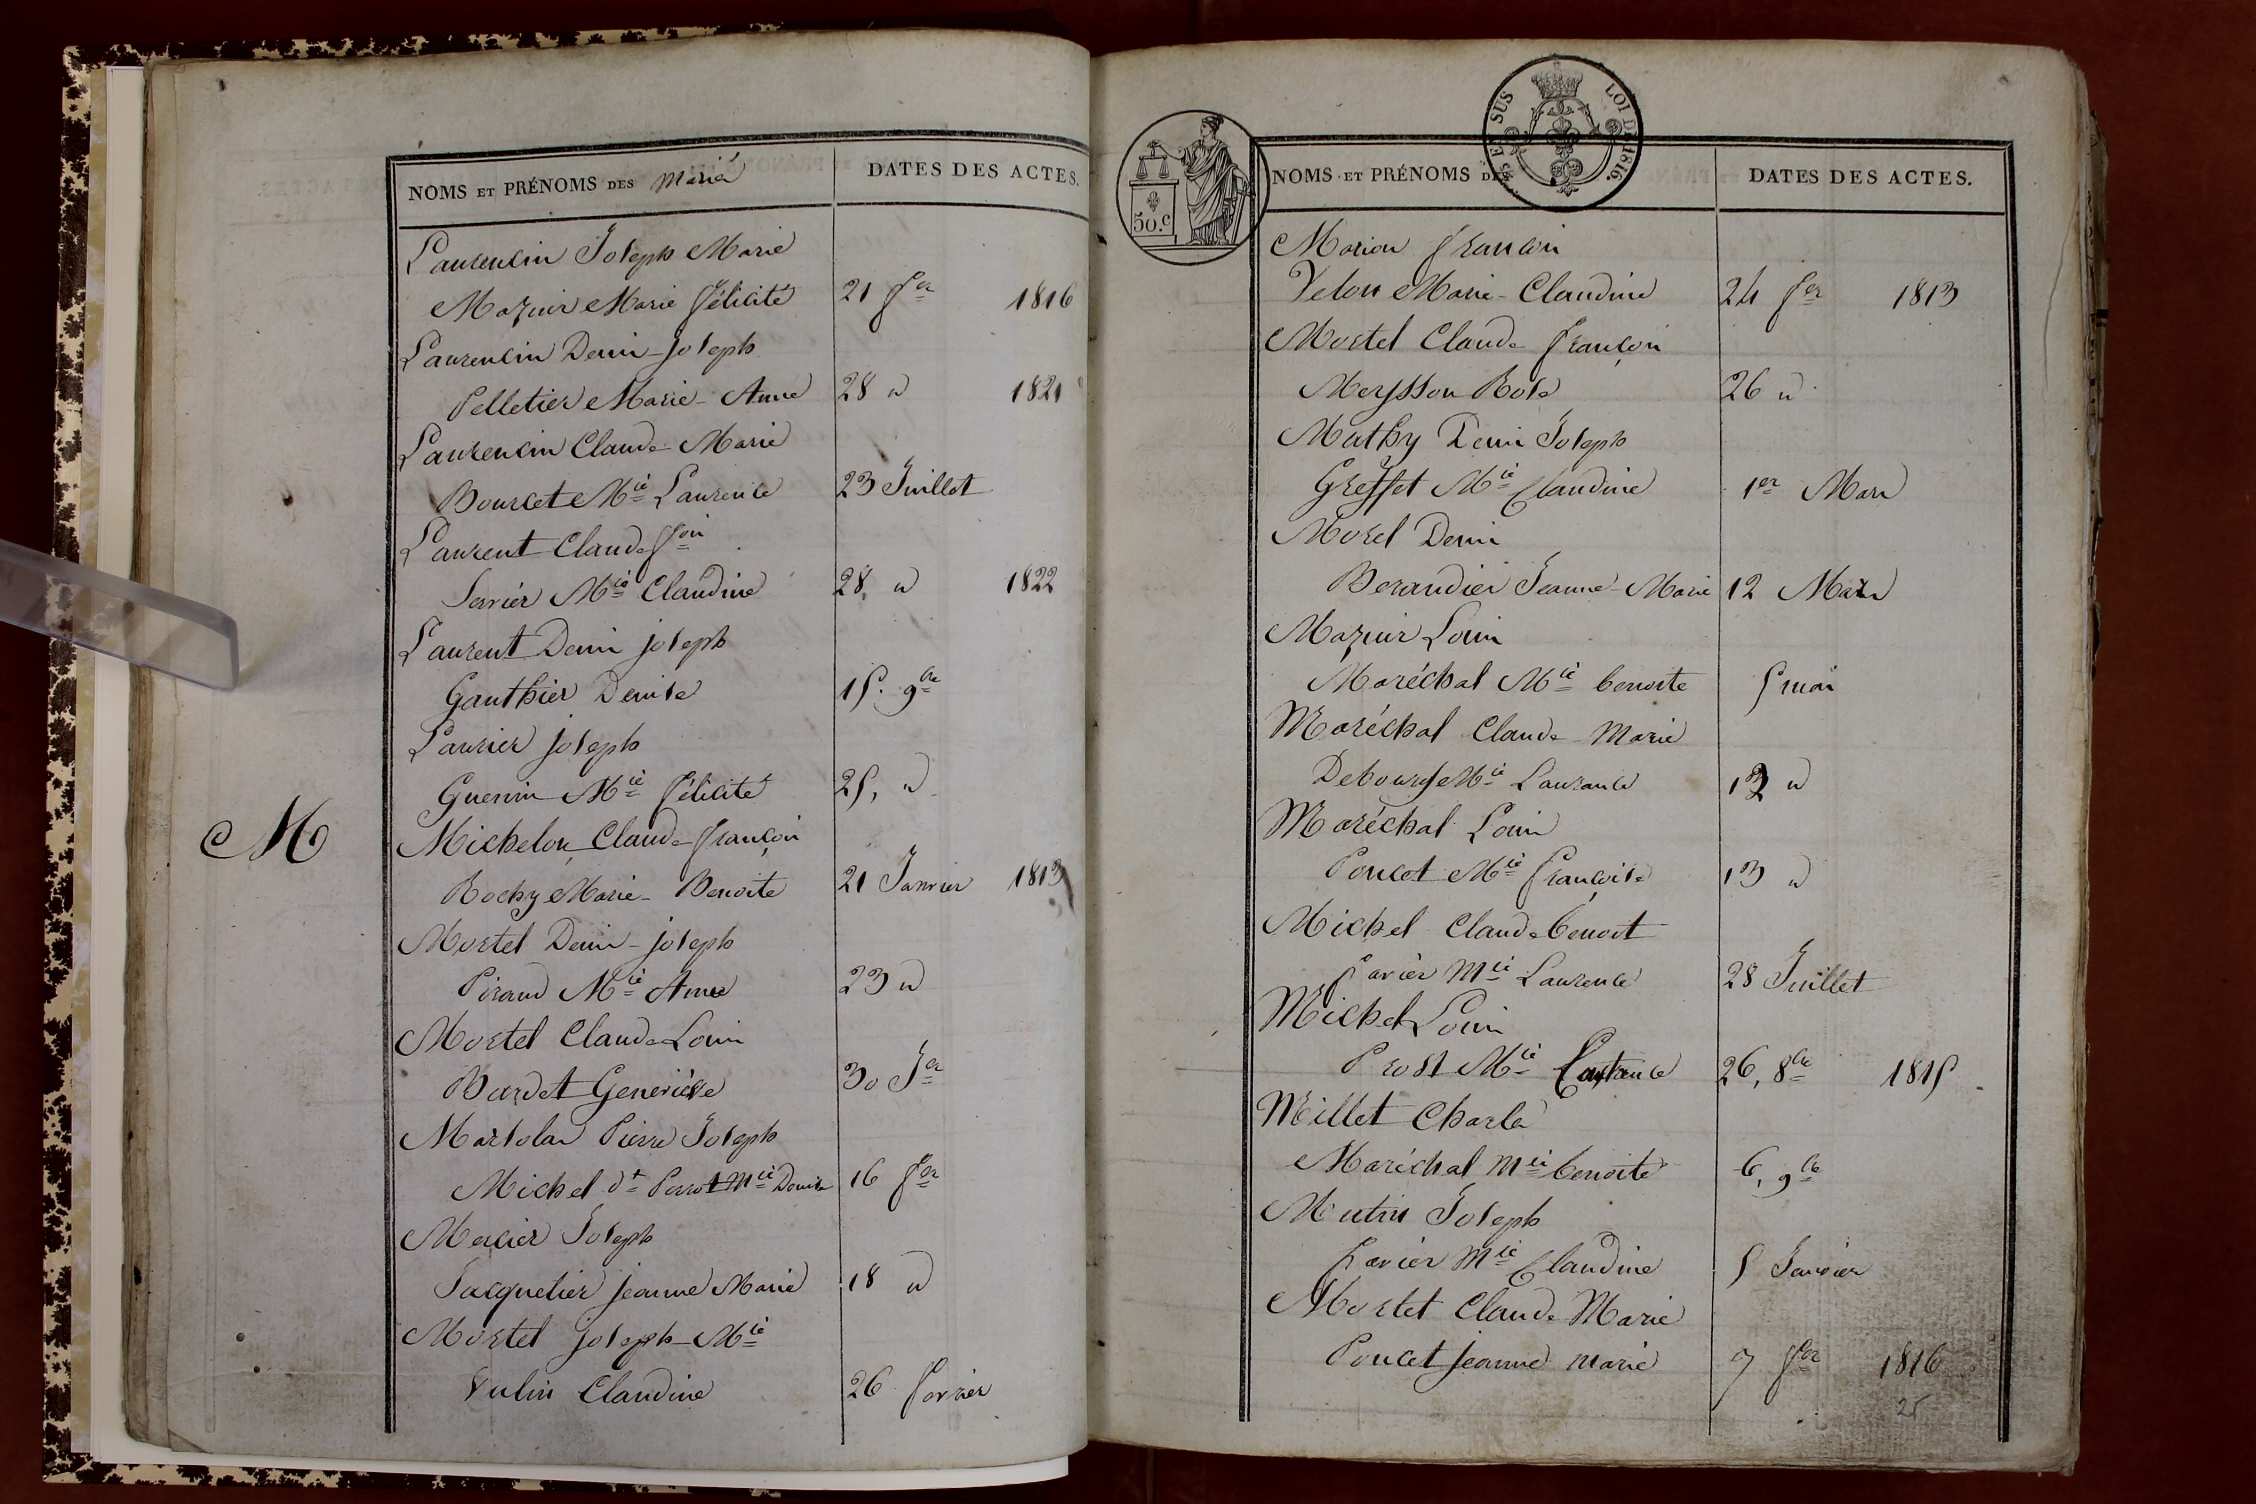 NOMS ET PRÉNOMS DES Mariés
DATES DES ACTES.
Laurencin Joseph Marie
Mazuir Marie Félicité 21 fer 1816
Laurencin Denis Joseph
Pelletier Marie-Anne 28 " 1821
Laurencin Claude Marie
Bourcet Mie Laurence 23 Juillet
Laurent Claude fois
Mie Claudine 28, " 1822
Laurent Denis joseph
Gauthier Denise 15. 9bre
Laurier joseph
Guenin Mie félicité 25, "
M
Michelon Claude françois
Rochy Marie-Benoite 21 Janvier 1813
Mortel Denis-joseph
Piraud Mie Anne 23 "
Mortel Claude Louis
Bardet Geneviève 30 Jer
Martolas Pierre Joseph
Michel dt Perrot Mie Denise 16 fer
Mercier Joseph
Jacquetier jeanne Marie 18 "
Mortel joseph-Mie
Vulin Claudine 26 fevrier
50.c
SUS LOI DE 1816.
NOMS ET PRÉNOMS DES
DATES DES ACTES.
Morion françois
Velon Marie-Claudine 24 fer 1813
Mortel Claude françois
Meysson Rose 26 "
Mathy Denis Joseph
Greffet Mie Claudine 1er Mars
Morel Denis
Beraudier Jeanne-Marie 12 Mars
Mazuir Louis
Maréchal Mie benoite 5 mai
Maréchal Claude Marie
Mie Laurence 12 "
Maréchal Louis
Poncet Mie françoise 13 "
Michel Claude benoit
Favier Mie Laurence 28 Juillet
Michel Louis
Prost Mie Constance 26, 8bre 1815
Millet Charles
Maréchal Mie benoite 6, 9bre
Mutin Joseph
Favier Mie Claudine 5 Janvier
Mortet Claude Marie
Poncet jeanne marie 7 fer 1816
25